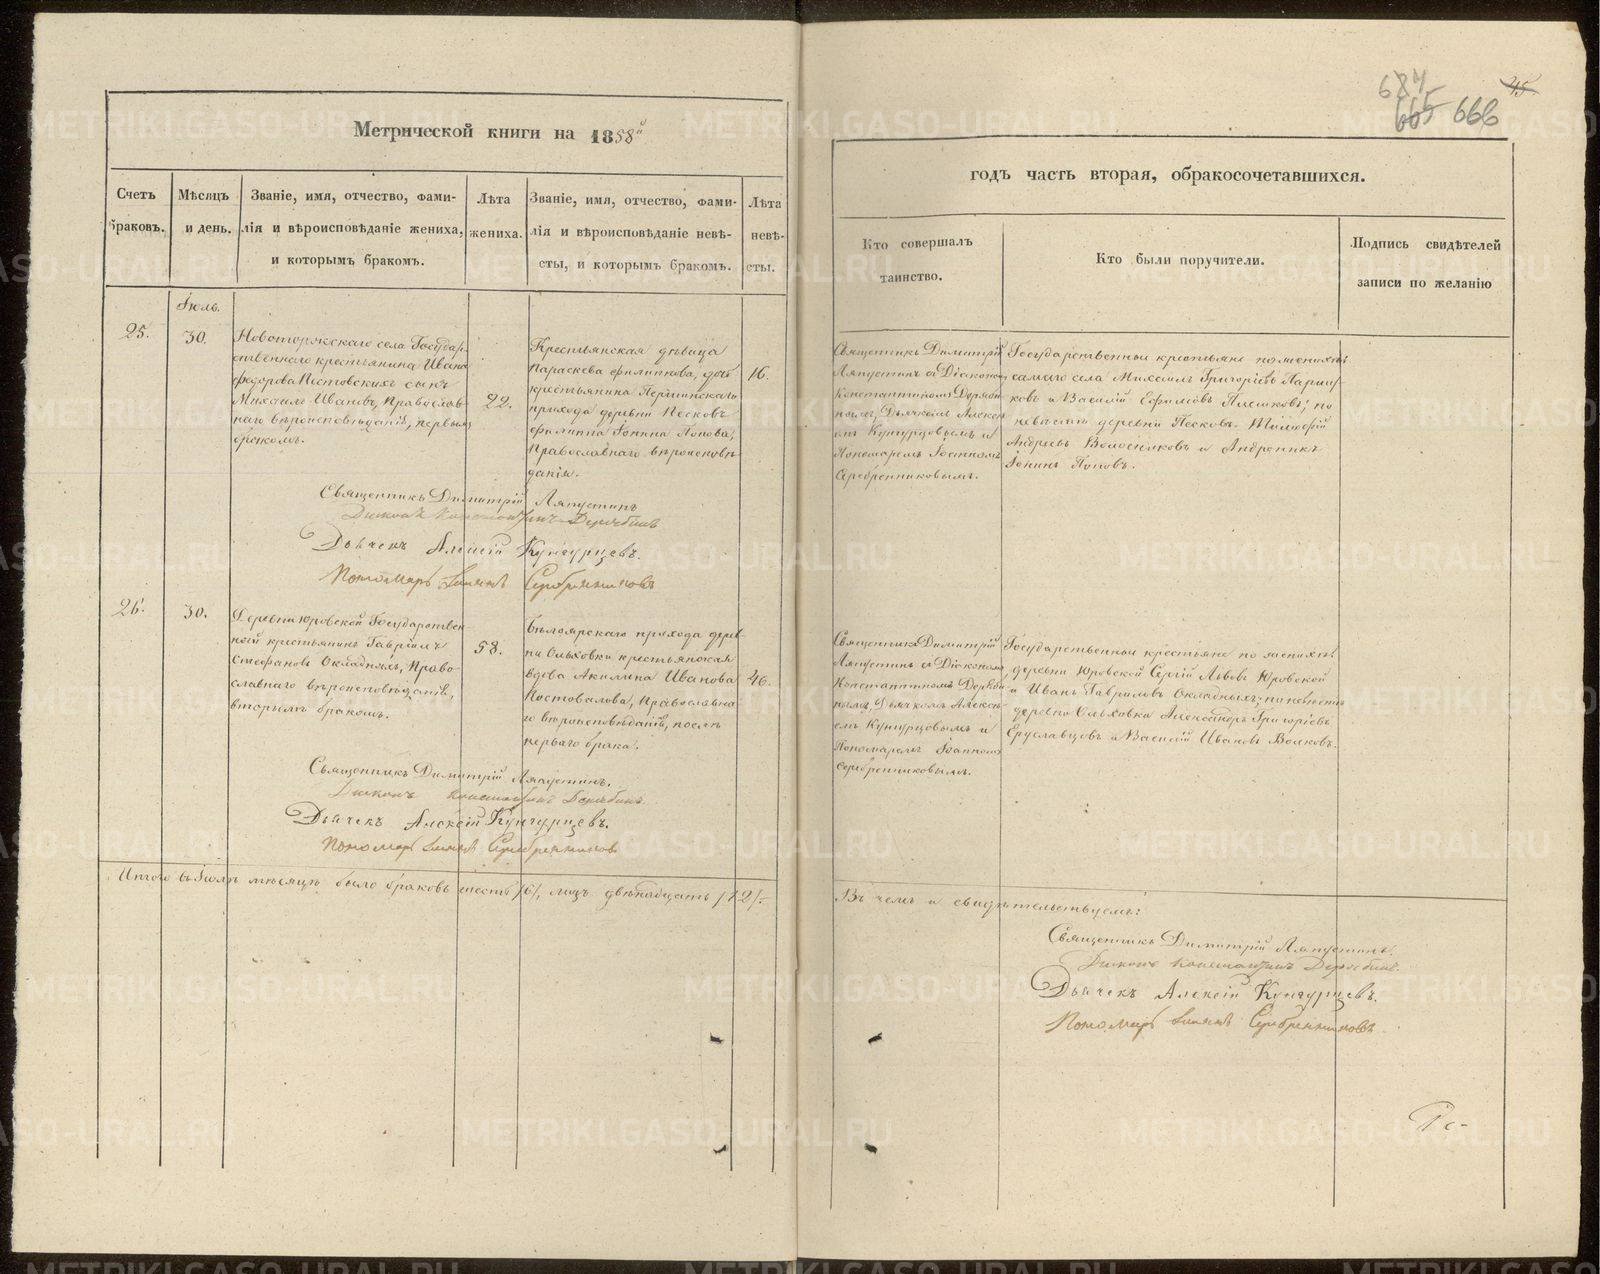 684
45.
665 666
Метрической книги на 1858й
годъ часть вторая, обракосочетавшихся.
Счетъ браковъ.
Мѣсяцъ и день.
Званіе, имя, отчество, фами-
лія и вѣроисповѣданіе жениха,
и которымъ бракомъ.
Лѣта жениха.
Званіе, имя, отчество, фами-
лія и вѣроисповѣданіе невѣ-
сты, и которымъ бракомъ.
Лѣта невѣ-
сты.
Кто совершалъ
таинство.
Кто были поручители.
Подпись свидѣтелей
записи по желанію
Іюль.
25.
30.
Новоторжскаго села Государ-
ственнаго крестьянина Ивана
Федорова Пестовскихъ сынъ
Михаилъ Ивановъ, Православ-
наго вѣроисповѣданія, первымъ
бракомъ.
22.
Крестьянская дѣвица
Параскева Филиппова, дочь
крестьянина Першинскаго
прихода деревни Песковъ
Филиппа Іонина Попова,
Православнаго вѣроисповѣ-
данія.
16.
Священникъ Димитрій
Ляпустинъ съ Діакономъ
Константиномъ
Дьячкомъ Алексі-
емъ Кунгурцовымъ и
Пономаремъ Іоанномъ
Серебренниковымъ.
Государственные крестьяне по женихѣ
самаго села Михаилъ Григорьевъ
и Василій Ефимовъ Плешковъ; по
невѣстѣ деревни Песковъ
Андреевъ и Андроникъ
Іонинъ Поповъ.
Священникъ Димитрій Ляпустинъ
Діаконъ Константинъ
Дьячекъ Алексій Кунгурцевъ.
Пономарь Іоаннъ Серебренниковъ
26.
30.
Деревни Юровской Государствен-
ный крестьянинъ Гавріилъ
Стефановъ Окладныхъ, Право-
славнаго вѣроисповѣданія,
вторымъ бракомъ.
58.
Бѣлоярскаго прихода дерев-
ни Ольховки крестьянская
вдова Акилина Иванова
Костовалова, Православна-
го вѣроисповѣданія, послѣ
перваго брака.
46.
Священникъ Димитрій
Ляпустинъ съ Діакономъ
Константиномъ
Дьячкомъ Алексі-
емъ Кунгурцовымъ и
Пономаремъ Іоанномъ
Серебренниковымъ.
Государственные крестьяне по женихѣ
деревни Юровской Сергій Львовъ Юровской
и Иванъ Гавриловъ Окладныхъ; по невѣстѣ
деревни Ольховки Александръ Григорьевъ
Еруславцовъ и Василій Ивановъ Волковъ.
Священникъ Димитрій Ляпустинъ.
Діаконъ Константинъ
Дьячекъ Алексій Кунгурцевъ.
Пономарь Іоаннъ Серебренниковъ
Итого въ Іюлѣ мѣсяцѣ было браковъ шесть /6/, лицъ двѣнадцать /12/.
Въ чемъ и свидѣтельствуемъ:
Священникъ Димитрій Ляпустинъ.
Діаконъ Константинъ
Дьячекъ Алексій Кунгурцевъ.
Пономарь Іоаннъ Серебренниковъ
METRIKI.GASO-URAL.RU